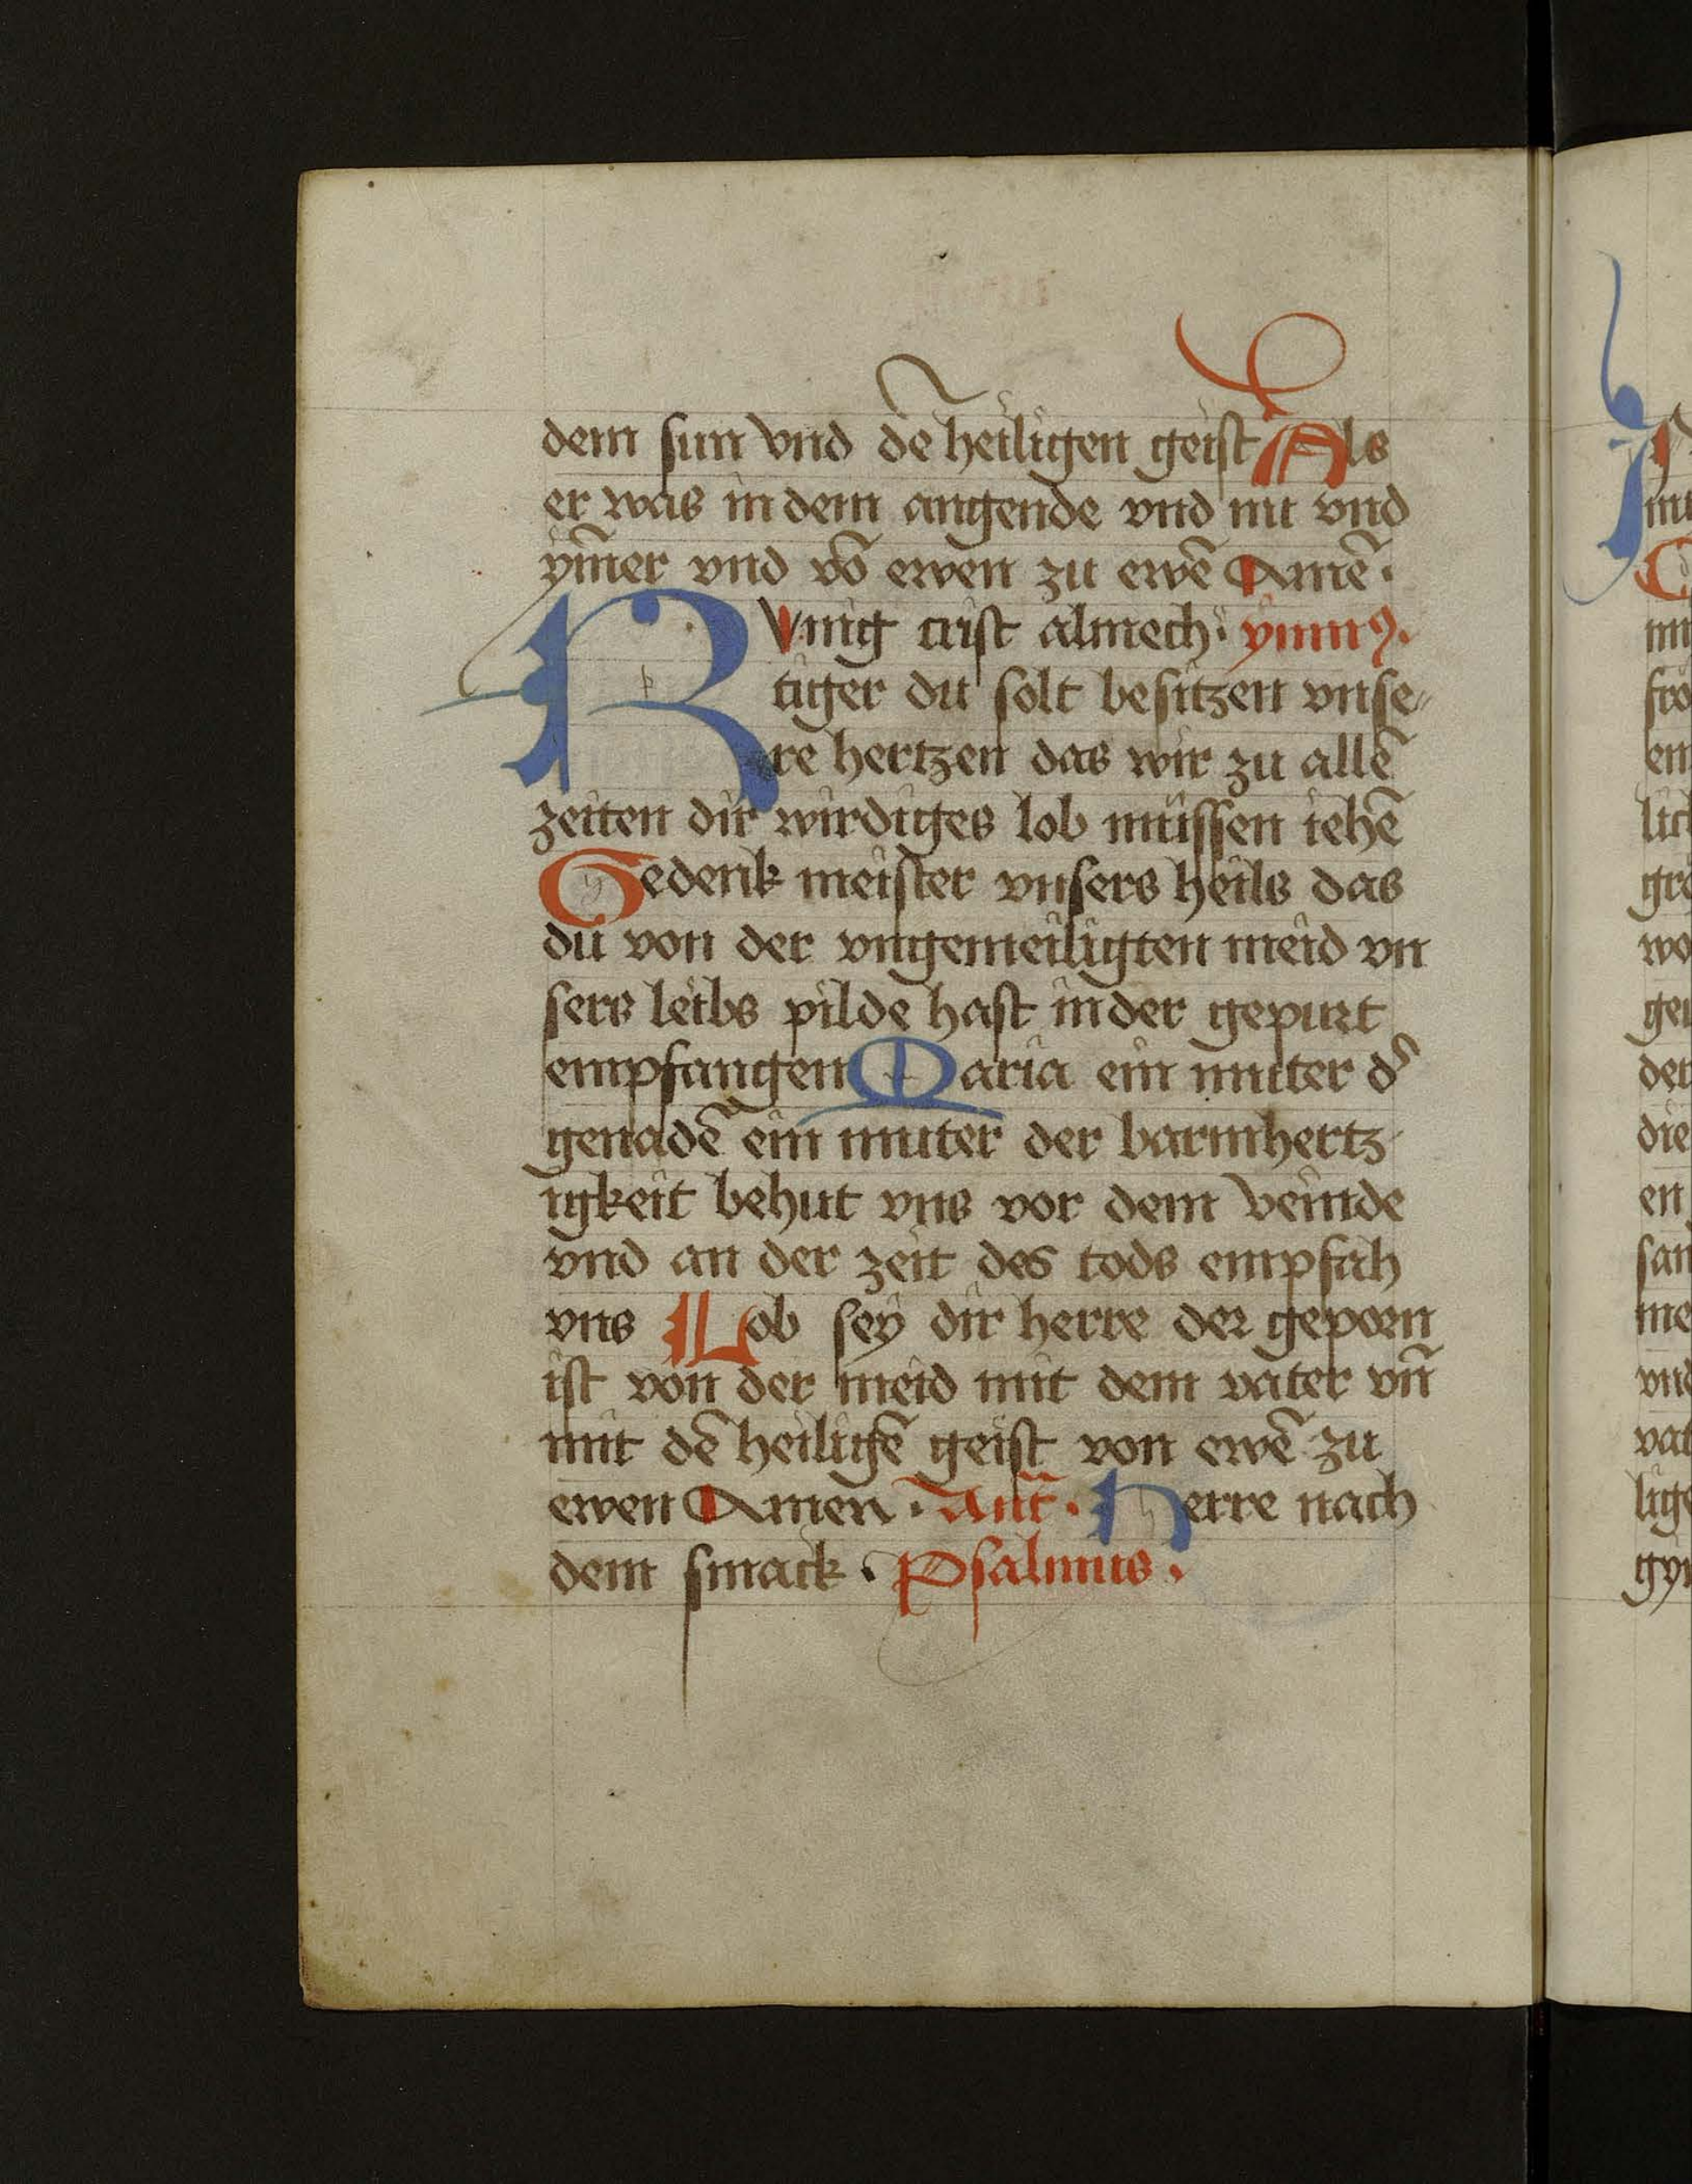 dem sun vnd dē heiligen geist Als
er was in dem angende vnd nu vnd
ym̄er vnd vō ewen zu ewē Amē.
KVnig crist almech: ymnꝰ.
tiger du solt besitzen vnse-
re hertzen das wir zu allē
zeiten dir wirdiges lob müssen iehē
Gedenk meister vnsers heils das
du von der vngemeiligten meid vn
sers leibs pilde hast in der gepurt
empfangen Maria ein muter dˢ
genadē ein muter der barmhertz
igkeit behut vns vor dem veinde
vnd an der zeit des tods empfah
vns Lob sey dir herre der geporn
ist von der meid mit dem vater vn̄
mit dē heiligē geist von ewē zu
ewen Amen. Ant̄. Herre nach
dem smack. Psalmus.